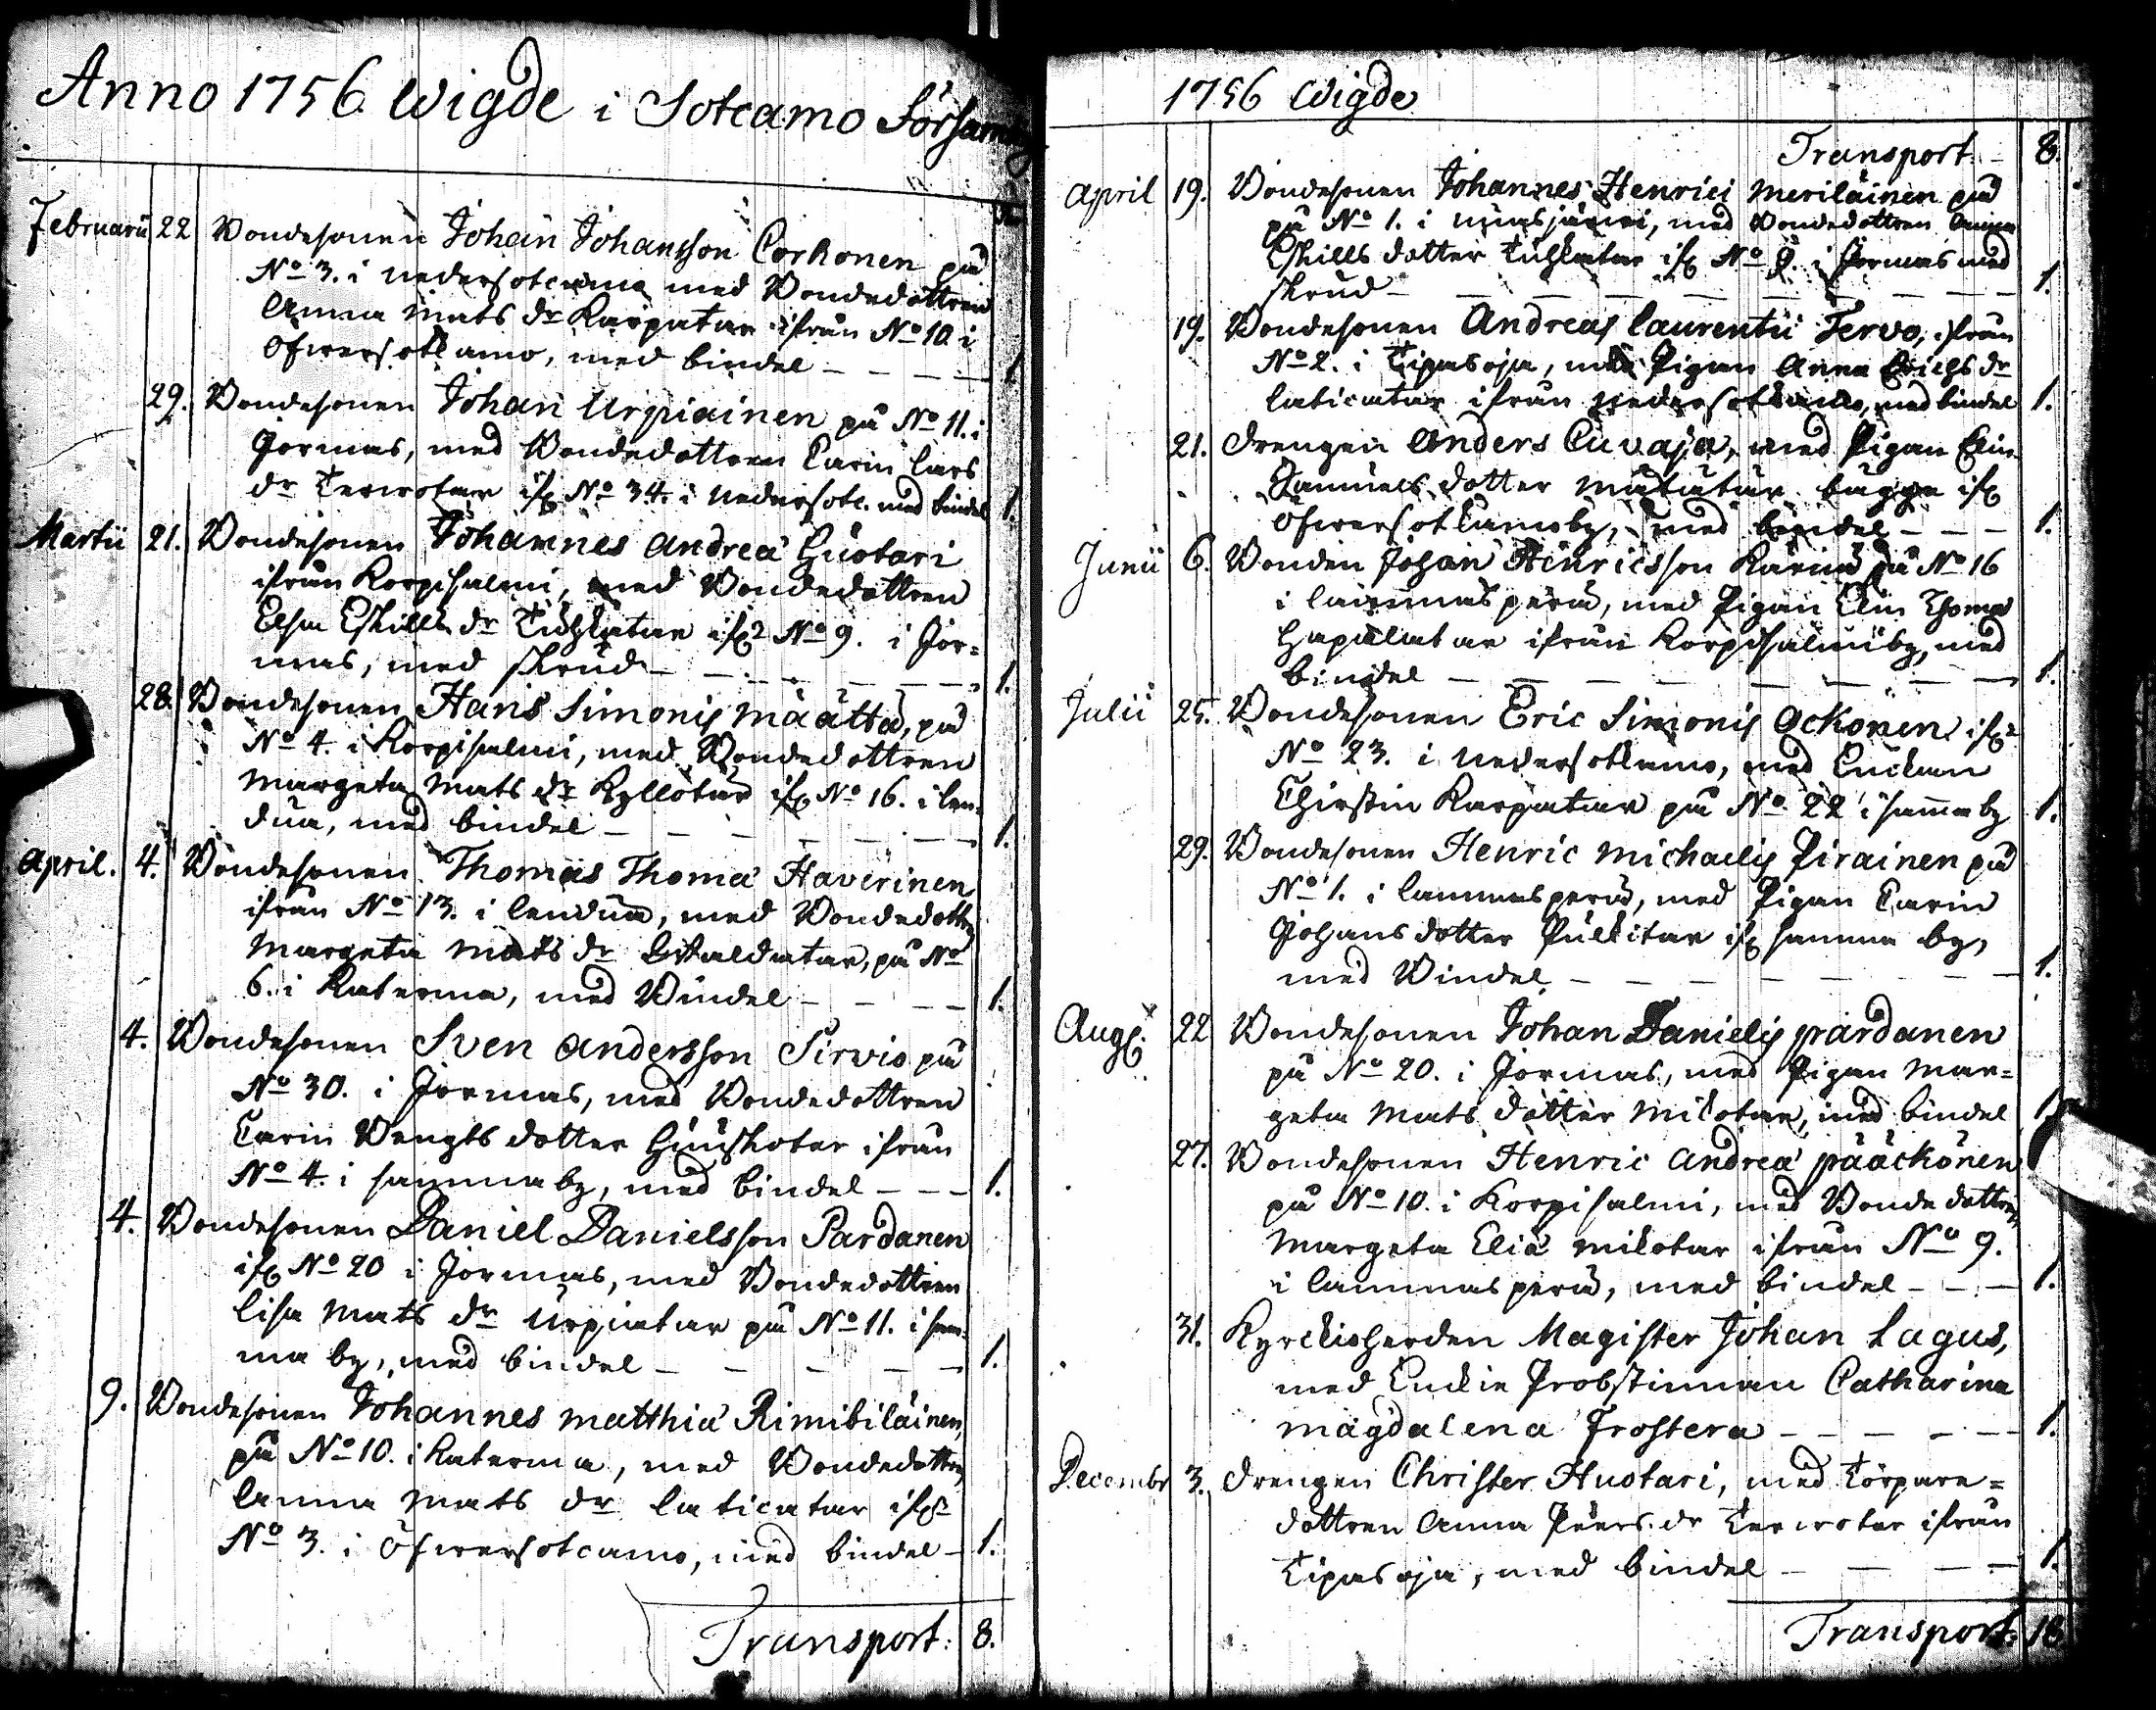 Anno 1756. Wigde i Sotcamo Församling
Februarii 22 Bondesonen Johan Johansson Corhonen på
No 3. i nedersotcamo med Bondedottren
Anna Mats dr Karpatar ifrån No 10. i
öfwersotkamo, med bindel 1
29. Bondesonen Johan Urpiainen på No 11. i
Jormas, med Bondedottren Carin Lars
dr Terwotar ifr No 34. i nedersotc. med bindel 1.
Martii 21. Bondesonen Johannes Andreæ Huotari
ifrån Korpisalmi, med Bondedottren
Elsa Eskills dr Tuhkatar ifr No 9. i Jor=
mas, med skrud 1.
28. Bondesonen Hans Simonis Määttä, på
No 4. i Korpisalmi, med Bondedottren
Margeta Mats dr Kyllötär ifr No 16. i Len=
dua, med bindel 1.
April. 4. Bondesonen Thomas Thomæ Haverinen
ifrån No 13. i Lendua, med Bondedottren
Margeta Mats dr på No
6. i Katerma, med Bindel 1.
4. Bondesonen Sven Andersson Sirvio på
No 30. i Jormas, med Bondedottren
Carin Bengts dotter Huuskotar ifrån
No 4. i samma by, med bindel 1.
4. Bondesonen Daniel Danielsson Pardanen
ifr No 20 i Jormas, med Bondedottren
Lisa Mats dr Urpiatar på No 11. i sam=
ma by, med bindel 1.
9. Bondesonen Johannes Matthiæ Rimibiläinen,
på No 10. i Katerma, med Bondedottren
Anna Mats dr Laticatar ifr
No 3. i öfwersotcamo, med bindel 1.
Transport: 8.
1756 Wigde
Transport 8.
April 19. Bondesonen Johannes Henrici Meriläinen på
på No 1. i nuasjärwi, med Bondedottren Anna
Eskills dotter Tuhkatar ifr No 9. i Jormas med
skrud 1.
19. Bondesonen Andreas Laurentii Tervo, ifrån
No 2. i Tipasoja, med Pigan Anna Erichs dr
Laticatar ifrån nedersotkamo, med bindel 1.
21. Drengen Anders Cuvaja, med Pigan Elin
Samuels dotter bägge ifr
öfwersotkamoby, med bindel 1.
Junii 6. Bonden Johan Henricsson Kärnä på No 16
i Lammasperä, med Pigan Elin Thomæ
Hapalatar ifrån Korpisalmiby, med
bindel 1.
Julii 25. Bondesonen Eric Simonis Ockonen ifr
No 23. i nedersotkamo, med Enckan
Chirstin Karpatar på No 22 i samma by 1.
29. Bondesonen Henric Michaelis Pirainen på
No 1. i Lammasperä, med Pigan Carin
Johans dotter Pulkitar ifr samma by,
med Bindel 1.
Aug. 22 Bondesonen Johan Danielis Pardanen
på No 20. i Jormas, med Pigan Mar=
geta Mats dotter Mikotar, med bindel 1.
27. Bondesonen Henric Andreæ Pääckönen
på No 10. i Korpisalmi, med Bondedottren
Margeta Eliæ Mikotar ifrån No 9.
i Lammasperä, med bindel 1.
31. Kyrckioherden Magister Johan Lagus,
med Enckie Probstinnan Catharina
Magdalena Frostera 1.
Decembr 3. Drengen Christer Huotari, med Torpare=
dottren Anna Peers dr Terwotar ifrån
Tipasoja, med bindel 1.
Transport: 18